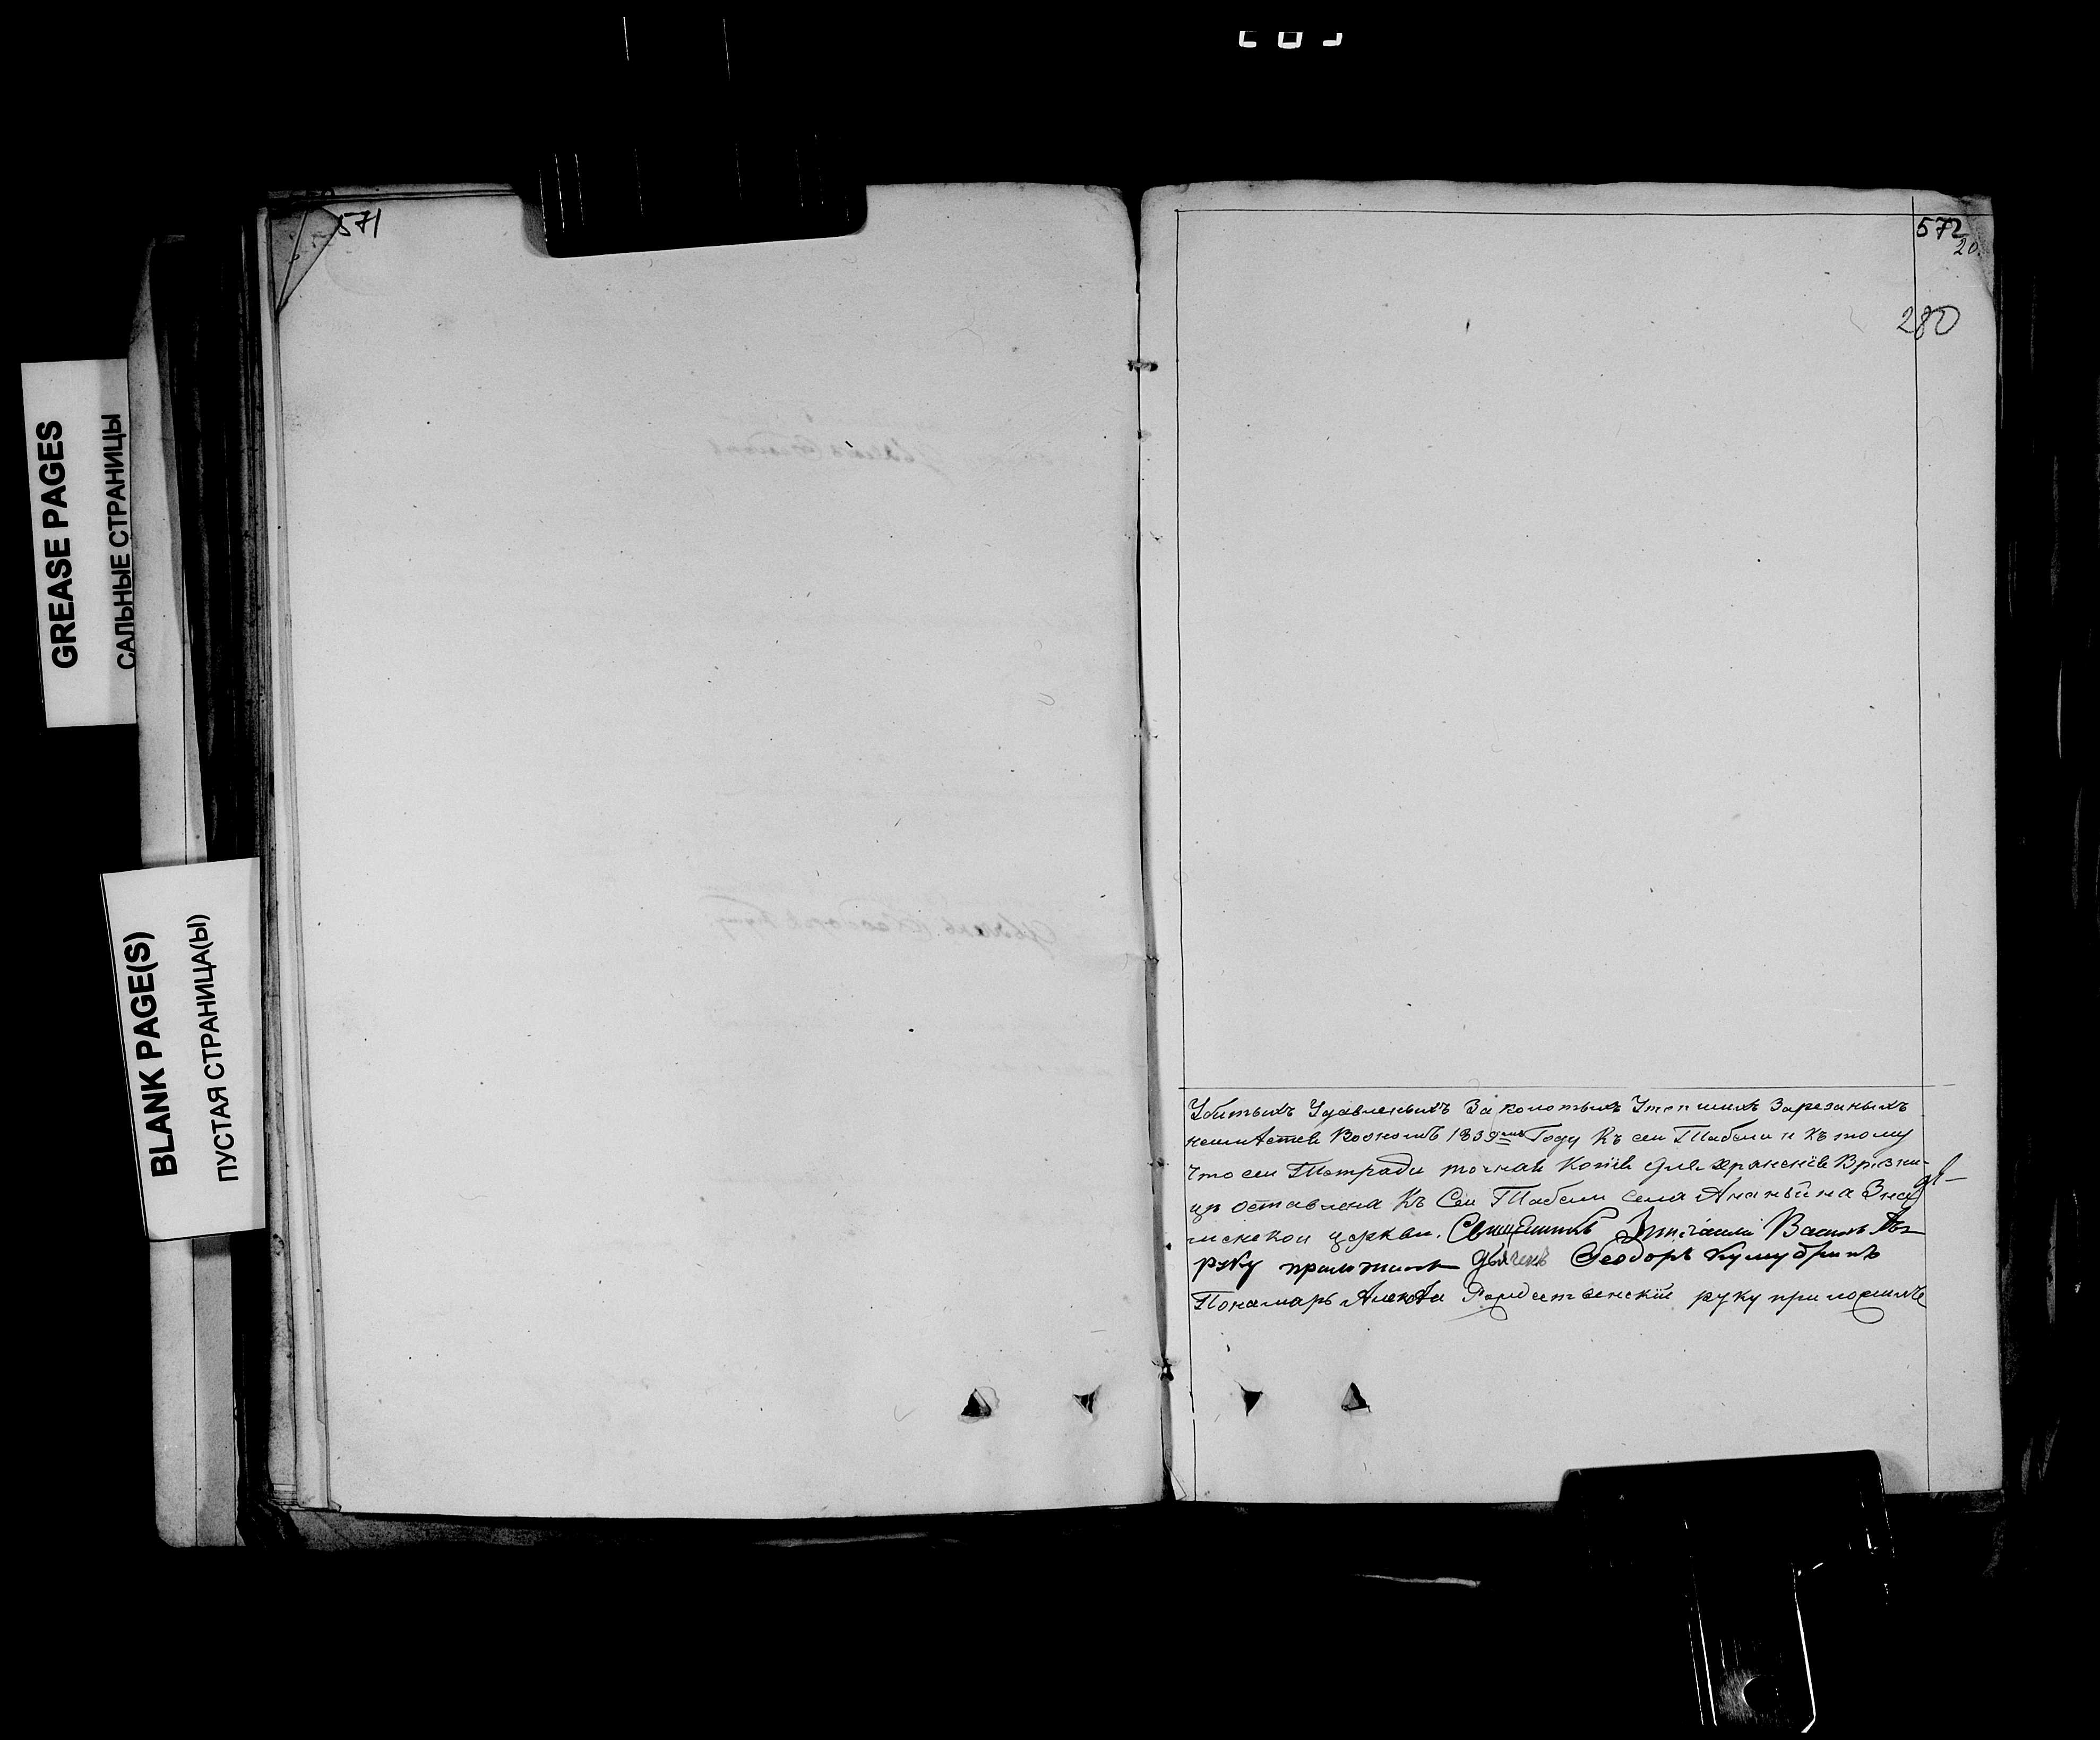 571
GREASE PAGES
САЛЬНЫЕ СТРАНИЦЫ
BLANK PAGE(S)
ПУСТАЯ СТРАНИЦА(Ы)
572
20.
280
Убитыхъ Удавленыхъ Заколотыхъ Утопшихъ Зарезаныхъ
1839 Году Къ сей Табели и къ тому
Что сей Тетради точная Копія для храненія Вризни-
це оставлена Къ Сей Табели села Ананьина
церкви. Священникъ Василь
руку приложилъ Дьячекъ Феодоръ
Пономарь Алексей Рождественскій руку приложилъ